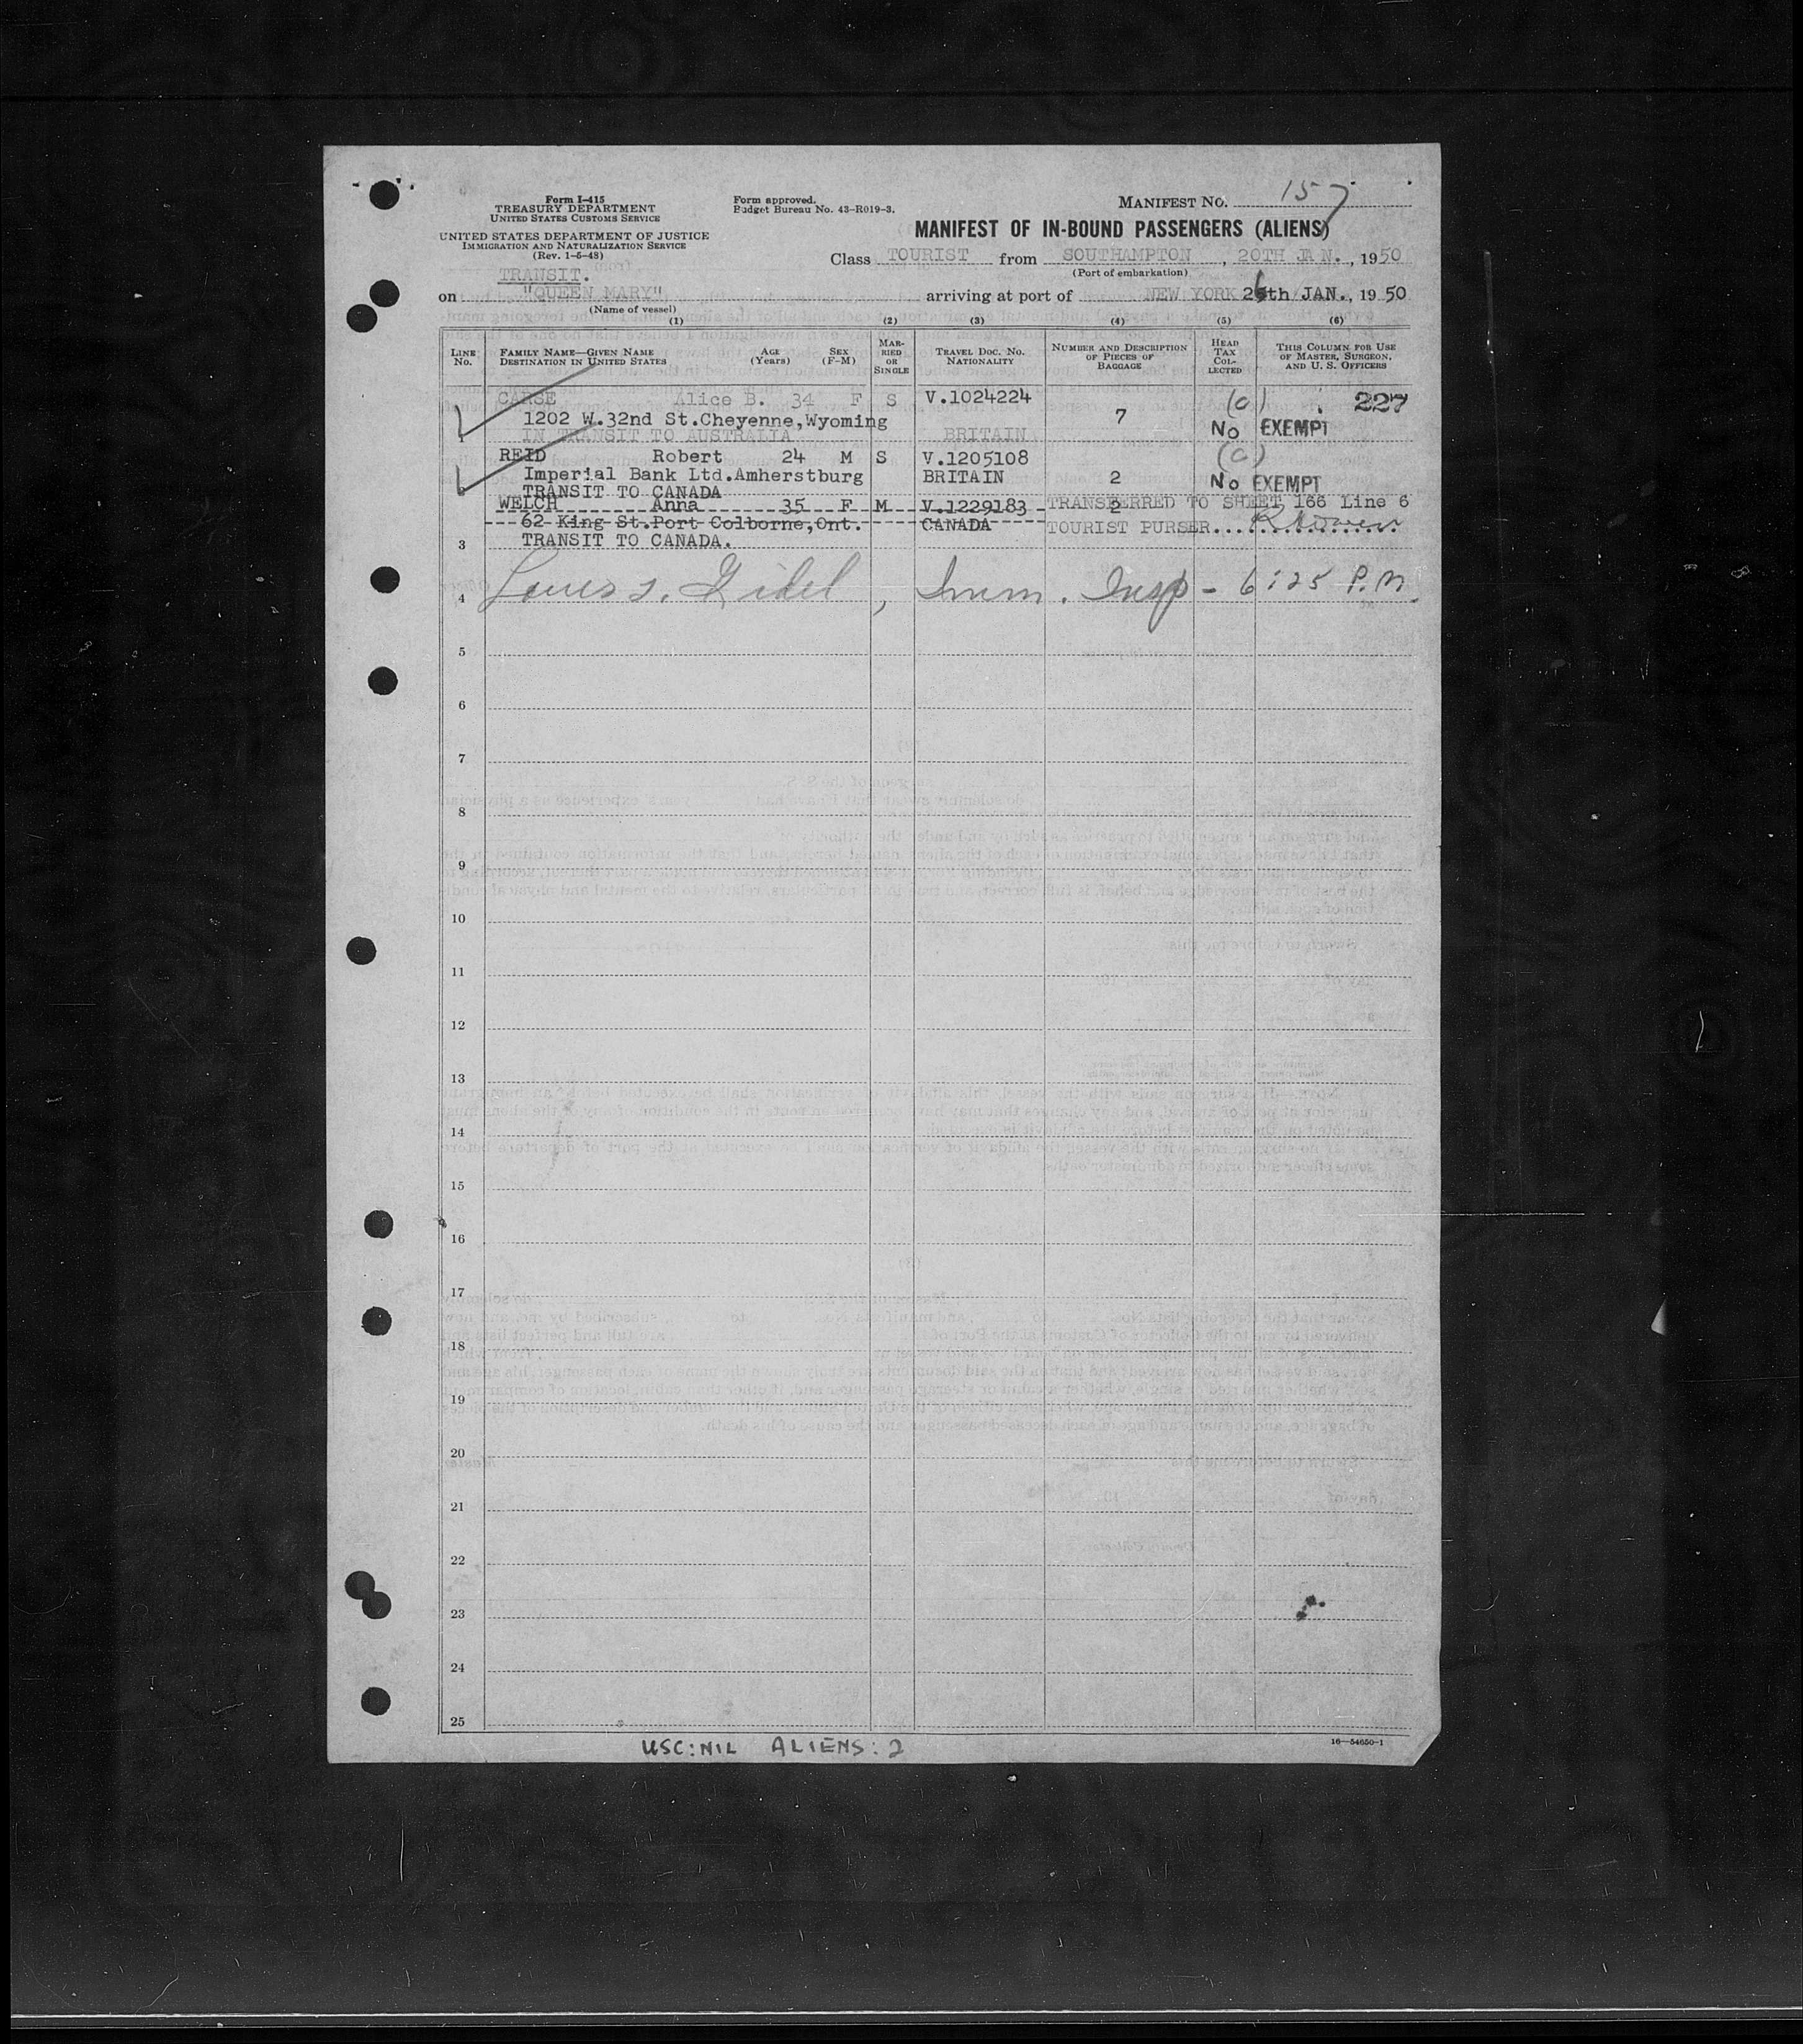 Form I-415
TREASURY DEPARTMENT
UNITED STATES CUSTOMS SERVICE
UNITED STATES DEPARTMENT OF JUSTICE
IMMIGRATION AND NATURALIZATION SERVICE
(Rev. 1-5-48)
Form approved.
Budget Bureau No. 43-R019-3.
MANIFEST NO. 157
MANIFEST OF IN-BOUND PASSENGERS (ALIENS)
Class TOURIST from SOUTHAMPTON, 20TH JAN., 1950
(Port of embarkation)
TRANSIT.
on "QUEEN MARY" arriving at port of NEW YORK 26th JAN., 1950
(Name of vessel)
(1) (2) (3) (4) (5) (6)
LINE No. FAMILY NAME—GIVEN NAME DESTINATION IN UNITED STATES AGE (Years) SEX (F-M) MARRIED OR SINGLE TRAVEL DOC. NO. NATIONALITY NUMBER AND DESCRIPTION OF PIECES OF BAGGAGE HEAD TAX COLLECTED THIS COLUMN FOR USE OF MASTER, SURGEON, AND U. S. OFFICERS
CARSE Alice B. 34 F S V.1024224 (a) 227
1202 W.32nd St.Cheyenne,Wyoming 7 No EXEMPT
1 IN TRANSIT TO AUSTRALIA BRITAIN
REID Robert 24 M S V.1205108 (a)
Imperial Bank Ltd.Amherstburg BRITAIN 2 No EXEMPT
2 TRANSIT TO CANADA
WELCH Anna 35 F M V.1229183 2 TRANSFERRED TO SHEET 166 Line 6
62 King St.Port Colborne,Ont. CANADA TOURIST PURSER
3 TRANSIT TO CANADA.
4 Louis S. Gidel, Imm. Insp - 6:25 P.M.
5
6
7
8
9
10
11
12
13
14
15
16
17
18
19
20
21
22
23
24
25
USC:NIL ALIENS: 2
16—54650-1